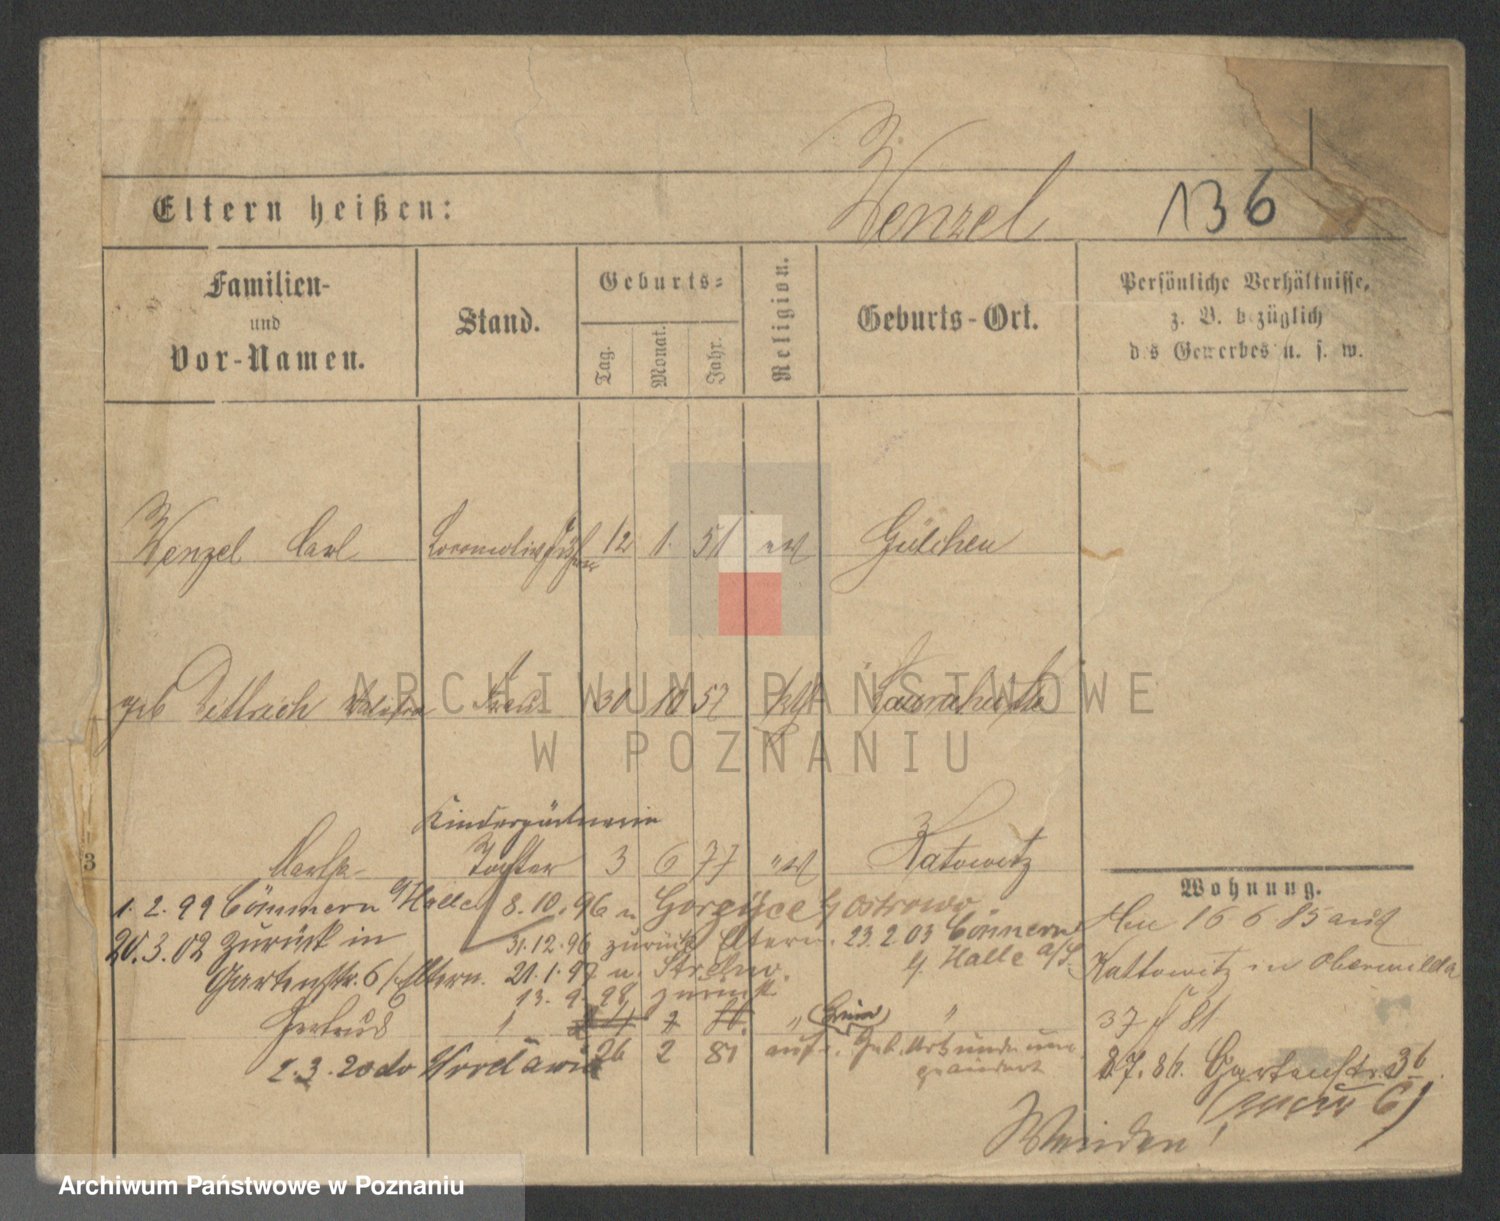 Eltern heißen:
Wenzel
136
Familien-
und
Vor-Namen.
Stand.
Geburts-
Tag.
Monat.
Jahr.
Religion.
Geburts-Ort.
Persönliche Verhältnisse,
z. B. bezüglich
des Gewerbes u. s. w.
Wenzel Carl Locomotivführer 12 1. 51 ev Gülchen
geb Dittrich Frau 30 10 52 kth Laurahütte
Kindergärtnerin
Martha Tochter 3 6 77 " ev Katowitz
3
Wohnung.
1. 2. 99 Cönnern a/Halle 8. 10. 96 n Gorzyce Ostrowo.
20. 3. 02 zurück in 31. 12. 96 zurück Eltern. 23. 2 03 Cönnern
Halle a/S.
Gartenstr. 6 / Eltern. 21. 1. 97 n. Strelno.
13. 9. 98 zurück
16 6 85 aus
Kattowitz in Oberwilda
37
Gertrud " 2 "
2. 3. 20 do 26 2 81 auf Geb. Urkunde um
geändert
8 7. 86. Gartenstr 36
(neu 6)
ARCHIWUM PAŃSTWOWE
W POZNANIU
Archiwum Państwowe w Poznaniu